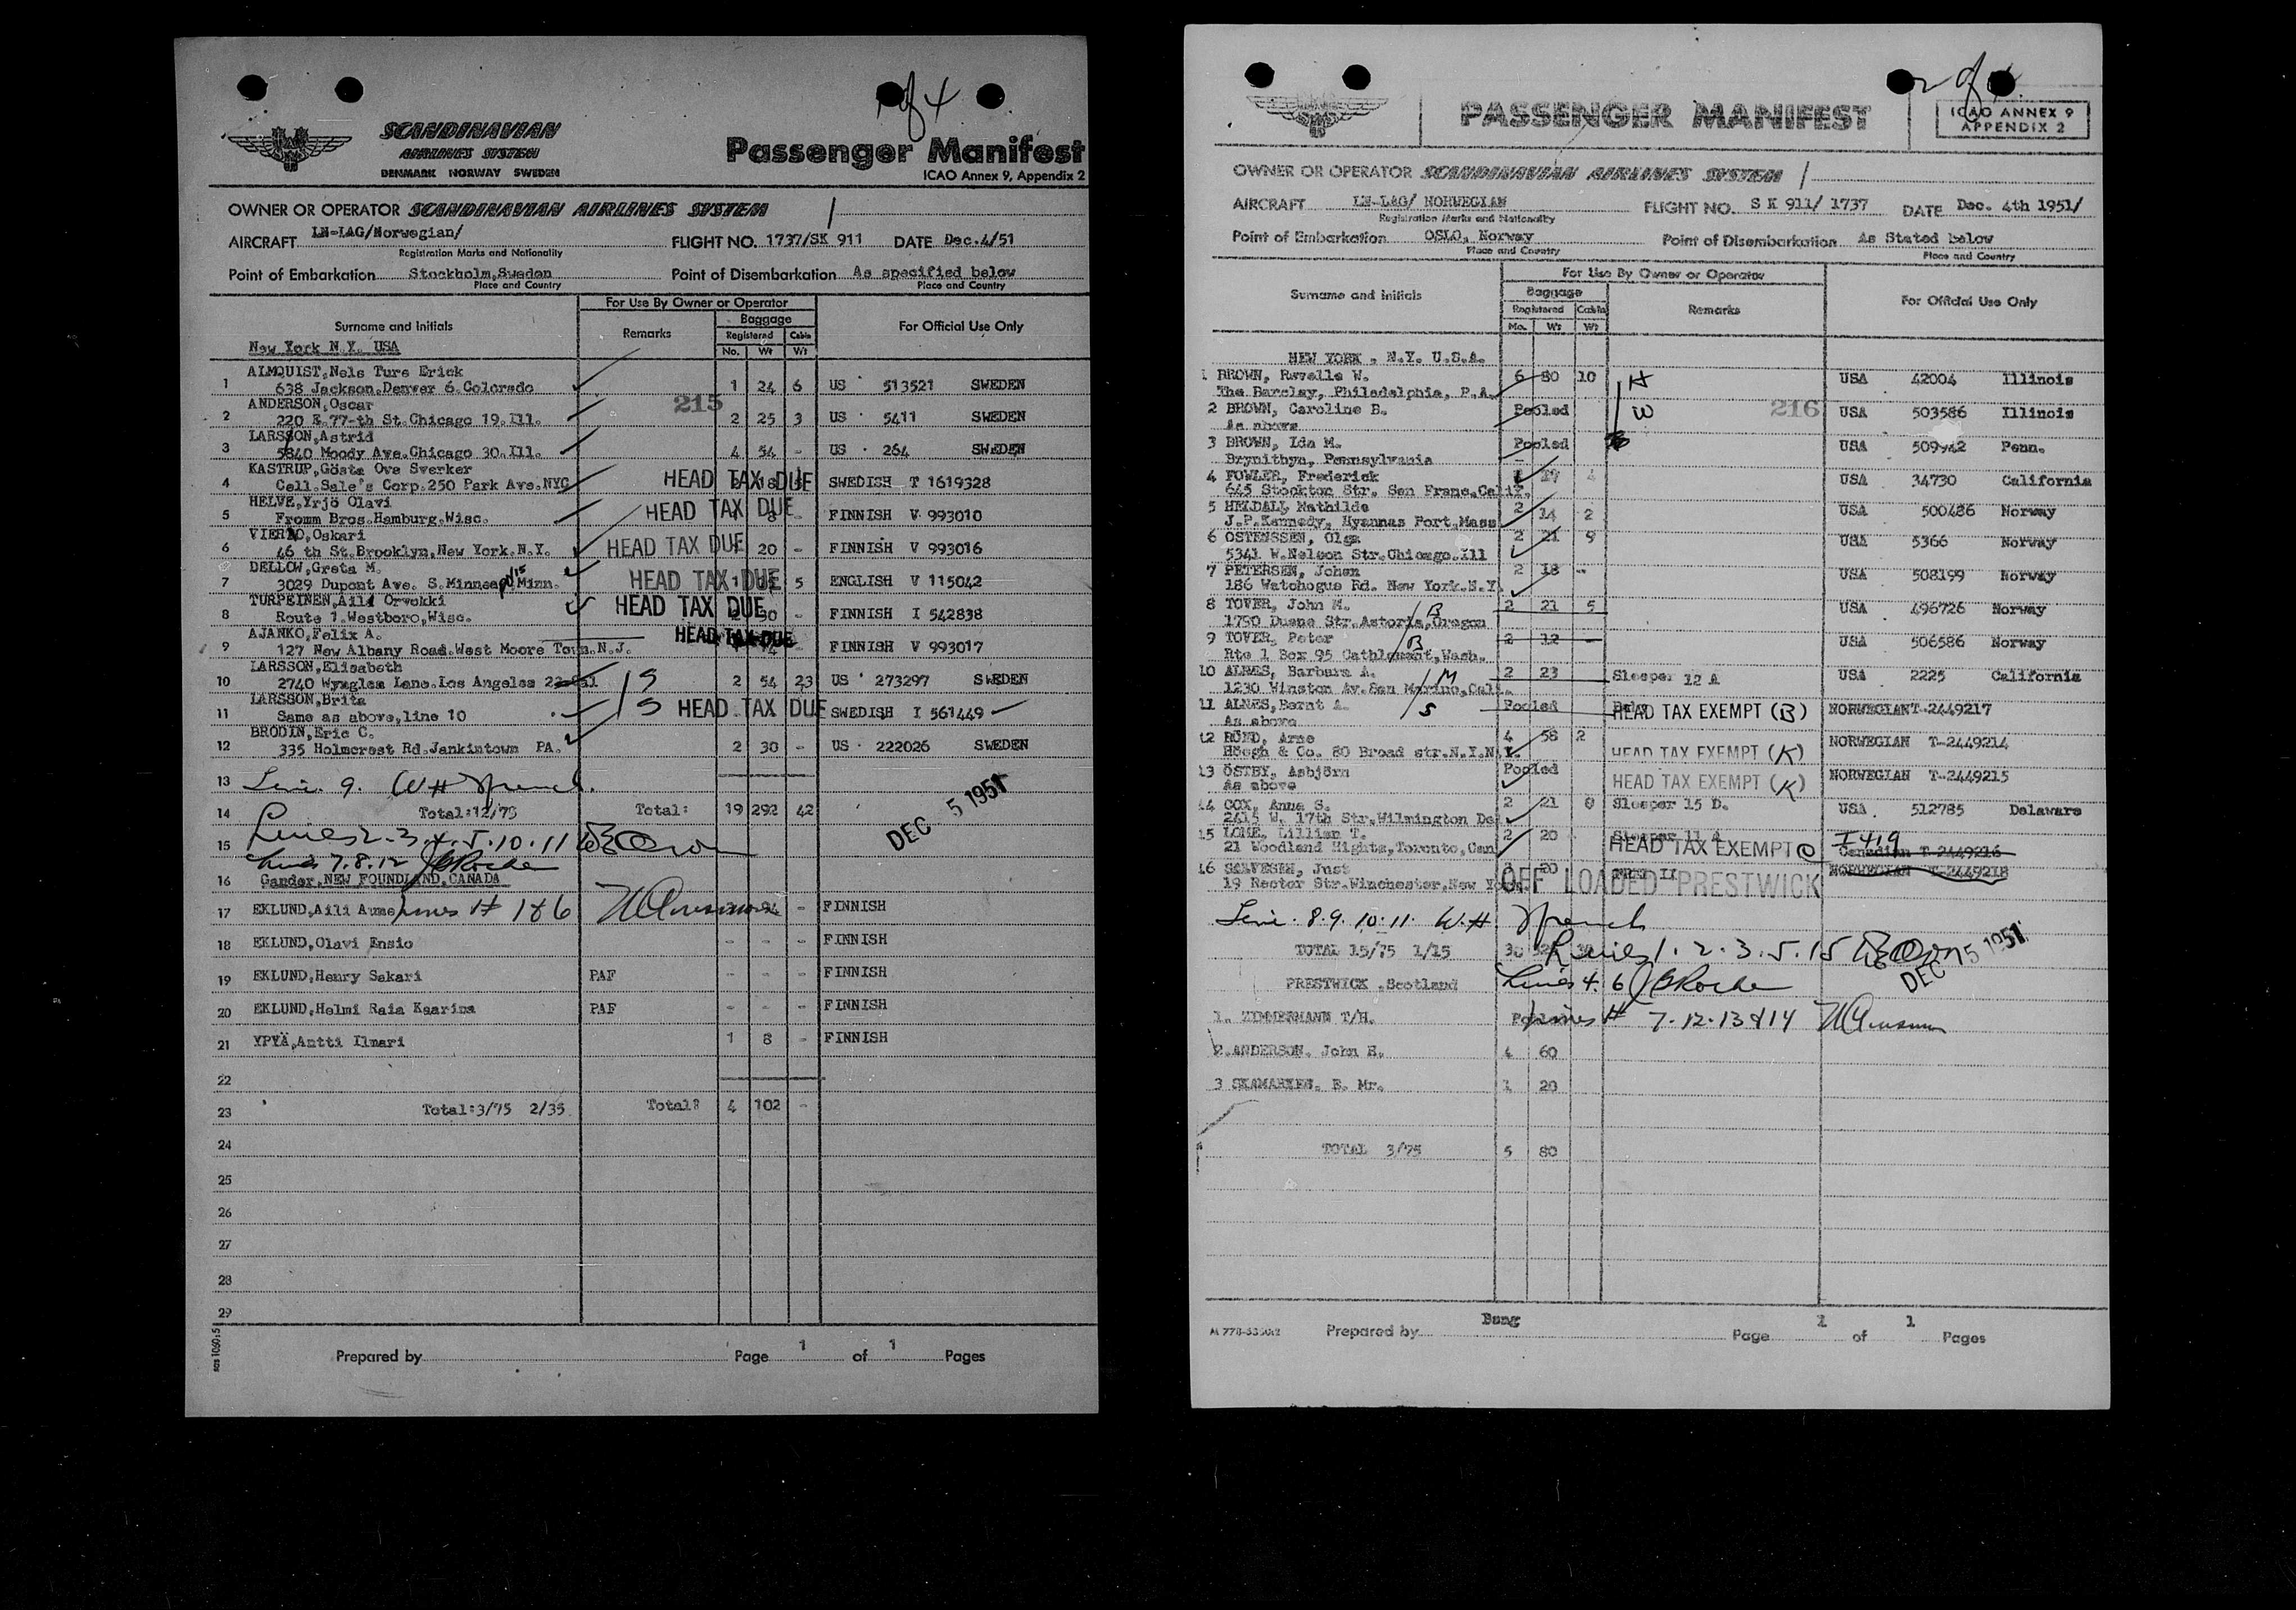 1 of 4
SCANDINAVIAN
AIRLINES SYSTEM
DENMARK NORWAY SWEDEN
Passenger Manifest
ICAO Annex 9, Appendix 2
OWNER OR OPERATOR SCANDINAVIAN AIRLINES SYSTEM
AIRCRAFT LN-LAG/Norwegian/ FLIGHT NO. 1737/SK 911 DATE Dec.4/51
Registration Marks and Nationality
Point of Embarkation Stockholm,Sweden Point of Disembarkation As specified below
Place and Country Place and Country
For Use By Owner or Operator
Surname and Initials Remarks Baggage For Official Use Only
Registered Cabin
No. Wt Wt
New York N.Y. USA
ALMQUIST,Nels Ture Erick
1 638 Jackson.Denver 6.Colorado 1 24 6 US 513521 SWEDEN
215
ANDERSON,Oscar
2 220 E.77-th St.Chicago 19.Ill. 2 25 3 US 5411 SWEDEN
LARSSON,Astrid
3 5840 Moody Ave.Chicago 30.Ill. 4 54 - US 264 SWEDEN
KASTRUP,Gösta Ove Sverker
4 Cell.Sale's Corp.250 Park Ave.NYC HEAD TAX DUE SWEDISH T 1619328
HELVE,Yrjö Olavi
5 Fromm Bros.Hamburg.Wisc. HEAD TAX DUE 8 - FINNISH V 993010
Oskari
6 46 th St.Brooklyn,New York.N.Y. HEAD TAX DUE 20 - FINNISH V 993016
DELLOW,Greta M.
7 3029 Dupont Ave. S.Minneap Minn. HEAD TAX DUE 5 ENGLISH V 115042
TURPEINEN,Aili Orvokki
8 Route 1.Westboro,Wisc. HEAD TAX DUE 30 - FINNISH I 542838
AJANKO,Felix A.
9 127 New Albany Road.West Moore Town.N.J. HEAD TAX DUE FINNISH V 993017
LARSSON,Elisabeth
10 2740 Lane.Los Angeles S 2 54 23 US 273297 SWEDEN
LARSSON,Brita
11 Same as above,line 10 S HEAD TAX DUE SWEDISH I 561449
BRODIN,Eric C.
12 335 Holmcrest Rd.Jankintown PA. 2 30 - US 222026 SWEDEN
13 Line 9. W H French.
14 Total:12/75 Total: 19 292 42
DEC 5 1951
15 Lines 2.3.4.5.10.11
Lines 7.8.12
16 Gander.NEW FOUNDLAND.CANADA
17 EKLUND,Aili Lines # 1&6 FINNISH
18 EKLUND,Olavi Ensio - - - FINNISH
19 EKLUND,Henry Sakari PAF - - - FINNISH
20 EKLUND,Helmi Raia Kaarina PAF - - - FINNISH
21 YPYÄ,Antti Ilmari 1 8 - FINNISH
22
23 Total:3/75 2/35 Total: 4 102 -
24
25
26
27
28
29
Prepared by Page 1 of 1 Pages
2 of 4
PASSENGER MANIFEST
ICAO ANNEX 9
APPENDIX 2
OWNER OR OPERATOR SCANDINAVIAN AIRLINES SYSTEM
AIRCRAFT LN-LAG/ NORWEGIAN FLIGHT NO. S K 911/ 1737 DATE Dec. 4th 1951/
Registration Marks and Nationality
Point of Embarkation OSLO, Norway Point of Disembarkation As Stated below
Place and Country Place and Country
For Use By Owner or Operator
Surname and Initials Baggage Remarks For Official Use Only
Registered Cabin
No. Wt Wt
NEW YORK . N.Y. U.S.A.
1 BROWN, Revelle W. 6 80 10 H USA 42004 Illinois
The Barclay, Philadelphia, P.A.
2 BROWN, Caroline B. Pooled W 216 USA 503586 Illinois
As above
3 BROWN, Ida M. Pooled USA 509942 Penn.
Brynithyn, Pennsylvania
4 FOWLER, Frederick USA 34730 California
645 Stockton Str. San Franc.Calif.
5 HELDAL, Mathilde 2 14 2 USA 500486 Norway
J.P.Kennedy, Hyannas Port,Mass
6 OSTENSSEN, Olga 2 21 USA 5366 Norway
5341 W.Nelson Str.Chicago.Ill
7 PETERSEN, Johan 2 18 - USA 508199 Norway
186 Watchogue Rd. New York.N.Y.
8 TOVER, John M. B 2 21 5 USA 496726 Norway
1790 Duane Str.Astoria,Oregon
9 TOVER, Peter B 2 12 - USA 506586 Norway
Rte 1 Box 95 Cathlamet,Wash.
10 ALNES, Barbara A. M 2 23 Sleeper 12 A USA 2225 California
1230 Winston Av.San Marino,Cali.
11 ALNES,Bernt A. S Pooled HEAD TAX EXEMPT (B) NORWEGIAN T-2449217
As above
12 Arne 4 58 2 HEAD TAX EXEMPT (K) NORWEGIAN T-2449214
Höegh & Co. 80 Broad str.N.Y.N.Y.
13 ÖSTBY, Asbjörn Pooled HEAD TAX EXEMPT (K) NORWEGIAN T-2449215
As above
14 COX, Anna S. 2 21 0 Sleeper 15 D. USA 512785 Delaware
2415 W. 17th Str.Wilmington De
15 Lillian T. 2 20 HEAD TAX EXEMPT I 419
21 Woodland Hights,Toronto,Can Canadian T-2449216
16 Just 20 NORWEGIAN T-2449218
19 Rector Str.Winchester,New York. OFF LOADED PRESTWICK
Line. 8.9.10.11. W.H. French
TOTAL 15/75 1/15 Lines 1.2.3.5.15
DEC 5 1951
PRESTWICK .Scotland Lines 4.6
1. ZIMMERMANN T/H. Lines # 7-12-13&14
2.ANDERSON. John H. 4 60
3 E. Mr. 1 20
TOTAL 3/75 5 80
Prepared by Bang Page 1 of 1 Pages